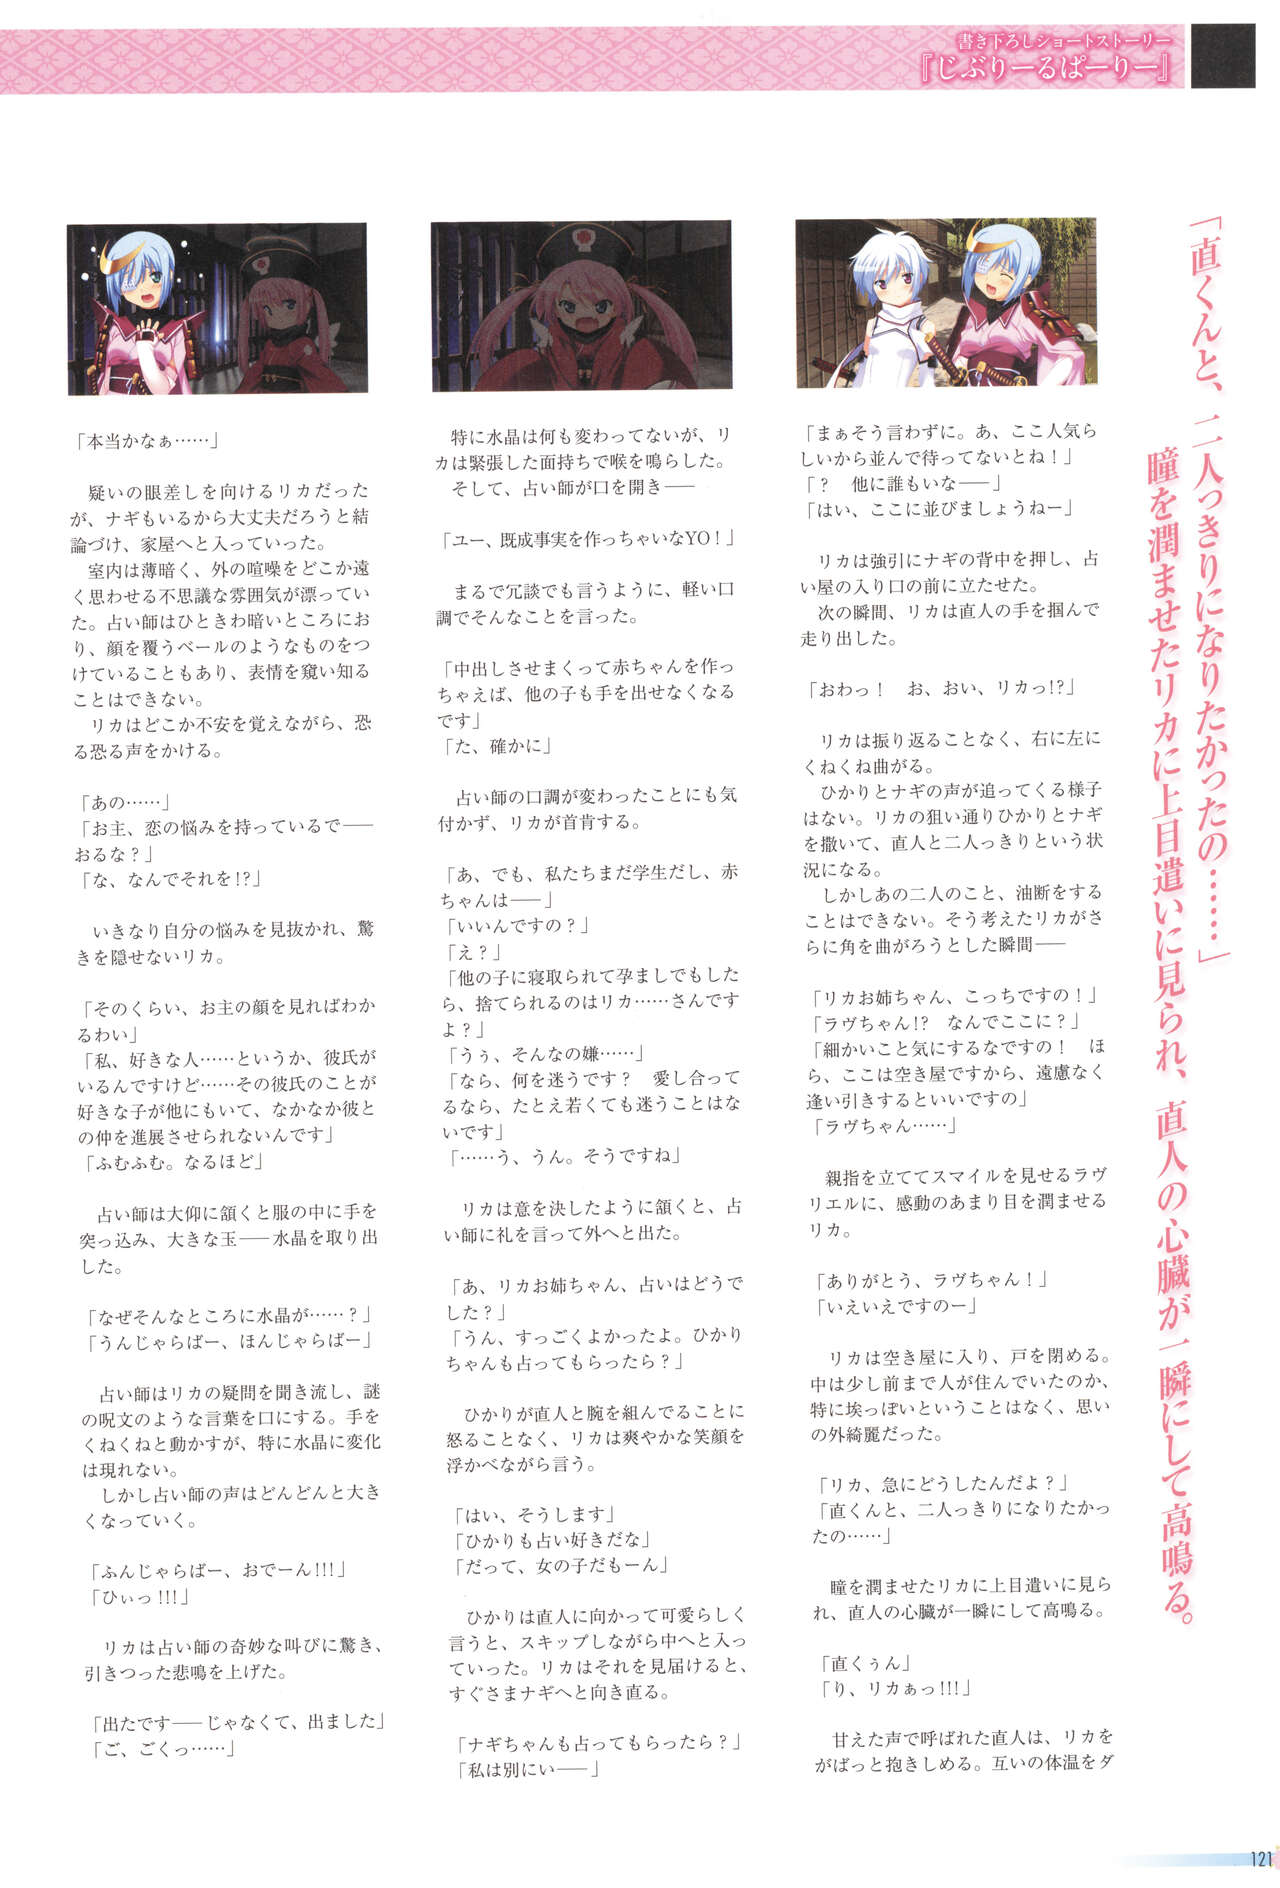 書き下ろしショートストーリー
『じぶりーるぱーりー』
「直くんと、二人っきりになりたかったの……」
瞳を潤ませたリカに上目遣いに見られ、直人の心臓が一瞬にして高鳴る。
「本当かなぁ……」
疑いの眼差しを向けるリカだった
が、ナギもいるから大丈夫だろうと結
論づけ、家屋へと入っていった。
室内は薄暗く、外の喧噪をどこか遠
く思わせる不思議な雰囲気が漂ってい
た。占い師はひときわ暗いところにお
り、顔を覆うベールのようなものをつ
けていることもあり、表情を窺い知る
ことはできない。
リカはどこか不安を覚えながら、恐
る恐る声をかける。
「あの……」
「お主、恋の悩みを持っているで――
おるな？」
「な、なんでそれを!?」
いきなり自分の悩みを見抜かれ、驚
きを隠せないリカ。
「そのくらい、お主の顔を見ればわか
るわい」
「私、好きな人……というか、彼氏が
いるんですけど……その彼氏のことが
好きな子が他にもいて、なかなか彼と
の仲を進展させられないんです」
「ふむふむ。なるほど」
占い師は大仰に頷くと服の中に手を
突っ込み、大きな玉――水晶を取り出
した。
「なぜそんなところに水晶が……？」
「うんじゃらばー、ほんじゃらばー」
占い師はリカの疑問を聞き流し、謎
の呪文のような言葉を口にする。手を
くねくねと動かすが、特に水晶に変化
は現れない。
しかし占い師の声はどんどんと大き
くなっていく。
「ふんじゃらばー、おでーん!!!」
「ひぃっ!!!」
リカは占い師の奇妙な叫びに驚き、
引きつった悲鳴を上げた。
「出たです――じゃなくて、出ました」
「ご、ごくっ……」
特に水晶は何も変わってないが、リ
カは緊張した面持ちで喉を鳴らした。
そして、占い師が口を開き――
「ユー、既成事実を作っちゃいなYO！」
まるで冗談でも言うように、軽い口
調でそんなことを言った。
「中出しさせまくって赤ちゃんを作っ
ちゃえば、他の子も手を出せなくなる
です」
「た、確かに」
占い師の口調が変わったことにも気
付かず、リカが首肯する。
「あ、でも、私たちまだ学生だし、赤
ちゃんは――」
「いいんですの？」
「え？」
「他の子に寝取られて孕ましでもした
ら、捨てられるのはリカ……さんです
よ？」
「うぅ、そんなの嫌……」
「なら、何を迷うです？　愛し合って
るなら、たとえ若くても迷うことはな
いです」
「……う、うん。そうですね」
リカは意を決したように頷くと、占
い師に礼を言って外へと出た。
「あ、リカお姉ちゃん、占いはどうで
した？」
「うん、すっごくよかったよ。ひかり
ちゃんも占ってもらったら？」
ひかりが直人と腕を組んでることに
怒ることなく、リカは爽やかな笑顔を
浮かべながら言う。
「はい、そうします」
「ひかりも占い好きだな」
「だって、女の子だもーん」
ひかりは直人に向かって可愛らしく
言うと、スキップしながら中へと入っ
ていった。リカはそれを見届けると、
すぐさまナギへと向き直る。
「ナギちゃんも占ってもらったら？」
「私は別にい――」
「まぁそう言わずに。あ、ここ人気ら
しいから並んで待ってないとね！」
「？　他に誰もいな――」
「はい、ここに並びましょうねー」
リカは強引にナギの背中を押し、占
い屋の入り口の前に立たせた。
次の瞬間、リカは直人の手を掴んで
走り出した。
「おわっ！　お、おい、リカっ!?」
リカは振り返ることなく、右に左に
くねくね曲がる。
ひかりとナギの声が追ってくる様子
はない。リカの狙い通りひかりとナギ
を撒いて、直人と二人っきりという状
況になる。
しかしあの二人のこと、油断をする
ことはできない。そう考えたリカがさ
らに角を曲がろうとした瞬間――
「リカお姉ちゃん、こっちですの！」
「ラヴちゃん!?　なんでここに？」
「細かいこと気にするなですの！　ほ
ら、ここは空き屋ですから、遠慮なく
逢い引きするといいですの」
「ラヴちゃん……」
親指を立ててスマイルを見せるラヴ
リエルに、感動のあまり目を潤ませる
リカ。
「ありがとう、ラヴちゃん！」
「いえいえですのー」
リカは空き屋に入り、戸を閉める。
中は少し前まで人が住んでいたのか、
特に埃っぽいということはなく、思い
の外綺麗だった。
「リカ、急にどうしたんだよ？」
「直くんと、二人っきりになりたかっ
たの……」
瞳を潤ませたリカに上目遣いに見ら
れ、直人の心臓が一瞬にして高鳴る。
「直くぅん」
「り、リカぁっ!!!」
甘えた声で呼ばれた直人は、リカを
がばっと抱きしめる。互いの体温をダ
121